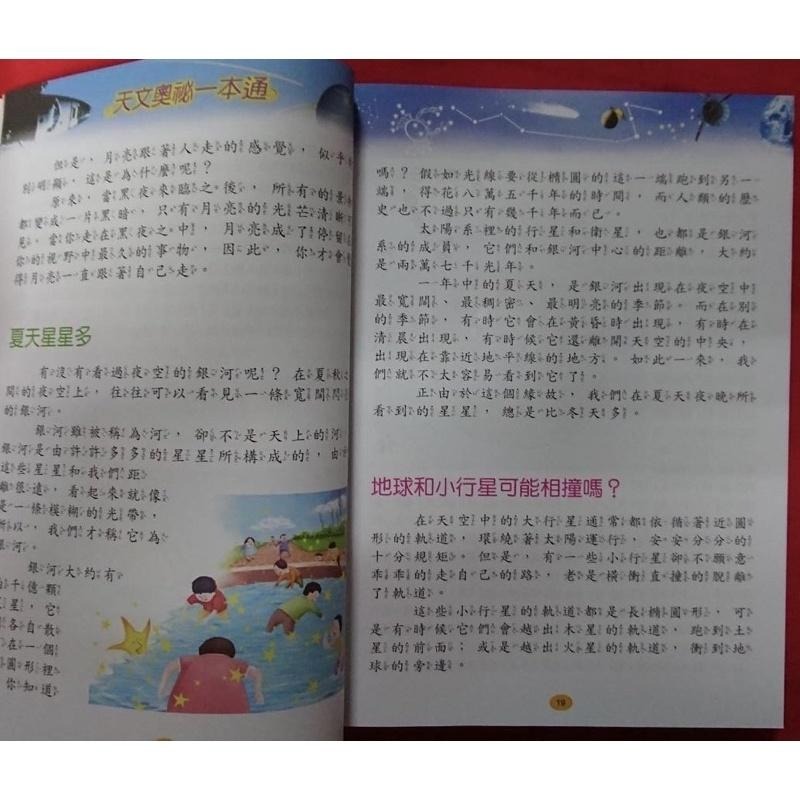 天文奧祕一本通
但是，月亮跟著人走的感覺，似乎
別明顯，這是為什麼呢？
原來，當黑夜來臨之後，所有的景
都變成一片黑暗，只有月亮的光芒清晰
見。當你走在黑夜之中，月亮成了停留
你的視野中最久的事物，因此，你才會
得月亮一直跟著自己走。
夏天星星多
有沒有看過夜空的銀河呢？在夏秋之
間的夜空上，往往可以看見一條寬闊
的銀河。
銀河雖被稱為河，卻不是天上的河
銀河是由許許多多的星星所構成的，由
這些星星和我們距
離很遠，看起來就像
是一條模糊的光帶，
所以，我們才稱它為
銀河。
銀河大約有
千億顆
星，它
各自散
在一個
圓形裡
你知道
嗎？假如光線要從橢圓的這一端跑到另一
端，得花八萬五千年的時間，而人類的歷
史也不過只有幾千年而已。
太陽系裡的行星和衛星，也都是銀河
系的成員，它們和銀河中心的距離，大約
是兩萬七千光年。
一年中的夏天，是銀河出現在夜空中
最寬闊、最稠密、最明亮的季節。而在別
的季節，有時它會在黃昏時出現，有時在
清晨出現，有時候它還離開天空的中央，
出現在靠近地平線的地方。如此一來，我
們就不大容易看到它了。
正由於這個緣故，我們在夏天夜晚所
看到的星星，總是比冬天多。
地球和小行星可能相撞嗎？
在天空中的大行星通常都依循著近圓
形的軌道，環繞著太陽運行，安安分分的
十分規矩。但是，有一些小行星卻不願意
乖乖的走自己的路，老是橫衝直撞的脫離
了軌道。
這些小行星的軌道都是長橢圓形，可
是有時候它們會越出木星的軌道，跑到土
星的前面；或是越出火星的軌道，衝到地
球的旁邊。
19